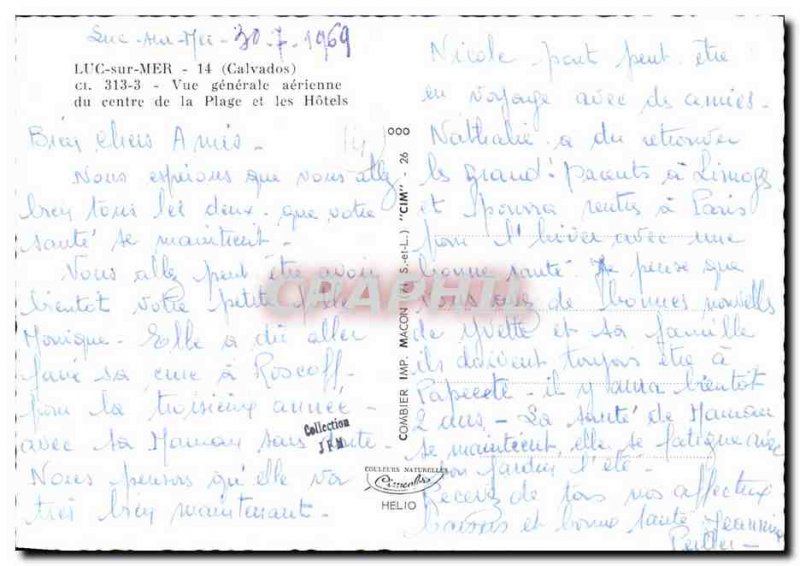 Luc-sur-Mer - 30-7-1969
LUC-sur-MER - 14 (Calvados)
CI. 313-3 - Vue générale aérienne
du centre de la Plage et les Hôtels
Bien chers Amis -
Nous espérons que vous allez
bien tous les deux. que votre
santé se maintient -
Vous allez peut être avoir
bientôt votre petite fille
Monique - Elle a dû aller
faire sa cure à Roscoff -
pour la troisième année -
avec sa Maman sans doute -
Nous pensons qu'elle va
très bien maintenant -
Collection
JFM
000
COMBIER IMP. MACON (71 S.-et-L.) "CIM" - 26
COULEURS NATURELLES
Cimcolor
HELIO
CPAPHIL
Nicole part peut être
en voyage avec des amies -
Nathalie a du retrouver
les grand-parents à Limoges
et pourra rentrer à Paris
pour l'hiver avec une
bonne santé - Je pense que
vous avez de bonnes nouvelles
de Yvette et sa famille
ils doivent toujours être à
Papeete - il y aura bientôt
2 ans - La santé de Maman
se maintient, elle se fatigue avec
son jardin l'été -
Recevez de tous nos affectueux
baisers et bonne santé - Jeannine